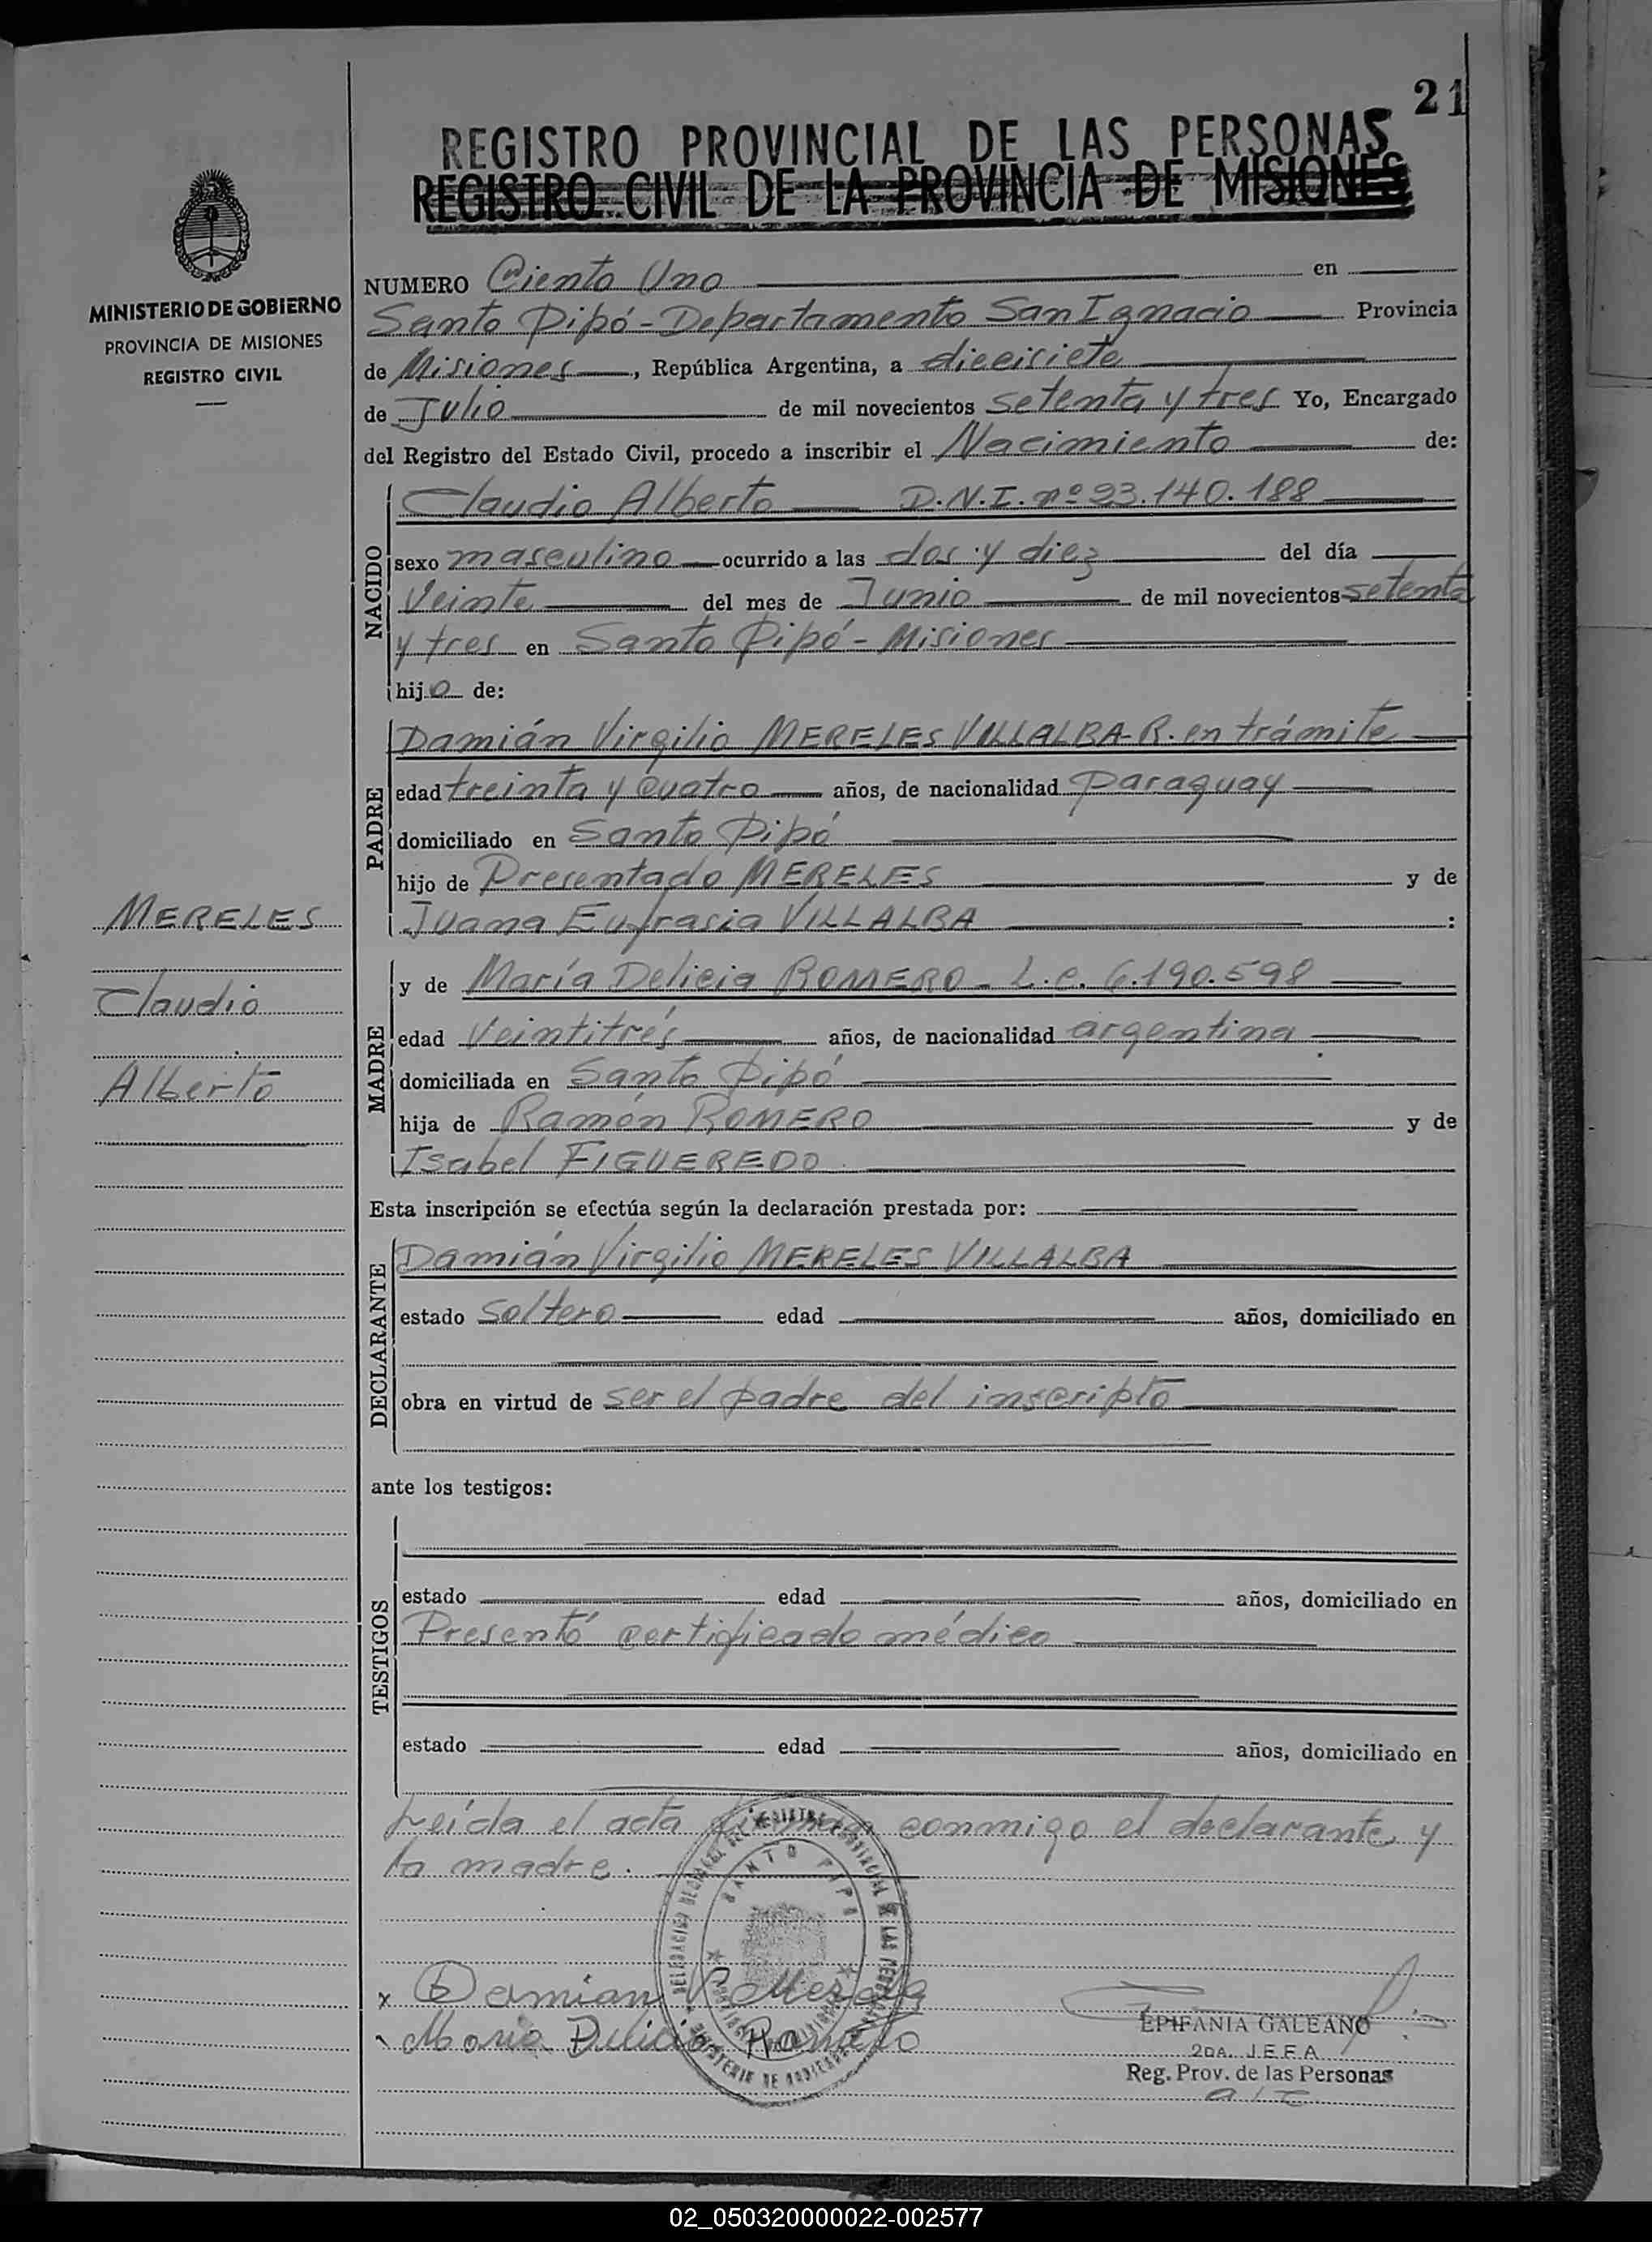 21
REGISTRO PROVINCIAL DE LAS PERSONAS
REGISTRO CIVIL DE LA PROVINCIA DE MISIONES
MINISTERIO DE GOBIERNO
PROVINCIA DE MISIONES
REGISTRO CIVIL
NUMERO Ciento Uno en
Santo Pipó - Departamento San Ignacio Provincia
de Misiones, República Argentina, a diecisiete
de Julio de mil novecientos setenta y tres Yo, Encargado
del Registro del Estado Civil, procedo a inscribir el Nacimiento de:
NACIDO
Claudio Alberto D.N.I. nº 23.140.188
sexo masculino ocurrido a las dos y diez del día
Veinte del mes de Junio de mil novecientos setenta
y tres en Santo Pipó - Misiones
hijo de:
PADRE
Damián Virgilio MERELES VILLALBA - R. en trámite
edad treinta y cuatro años, de nacionalidad paraguay
domiciliado en Santo Pipó
hijo de Presentado MERELES y de
Juana Eufrasia VILLALBA :
MERELES
Claudio
Alberto
MADRE
y de María Delicia ROMERO - L.C. 6.190.598
edad Veintitrés años, de nacionalidad argentina
domiciliada en Santo Pipó
hija de Ramón ROMERO y de
Isabel FIGUEREDO
Esta inscripción se efectúa según la declaración prestada por:
DECLARANTE
Damián Virgilio MERELES VILLALBA
estado Soltero edad años, domiciliado en
obra en virtud de ser el padre del inscripto
ante los testigos:
TESTIGOS
estado edad años, domiciliado en
Presentó certificado médico
estado edad años, domiciliado en
Leída el acta conmigo el declarante y
la madre.
SANTO PIPO
Damian V. Mereles
Maria Delicia Romero
EPIFANIA GALEANO
2DA. JEFA
Reg. Prov. de las Personas
02_050320000022-002577